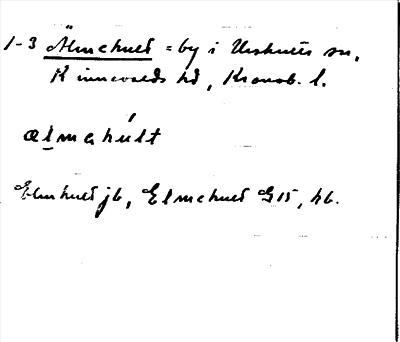 1-3 Älmehult = by i Urshults sn,
Kinnevalds hd, Kronob. l.
ælmahúlt
Elmhult jb, Elmehult GS, hb.